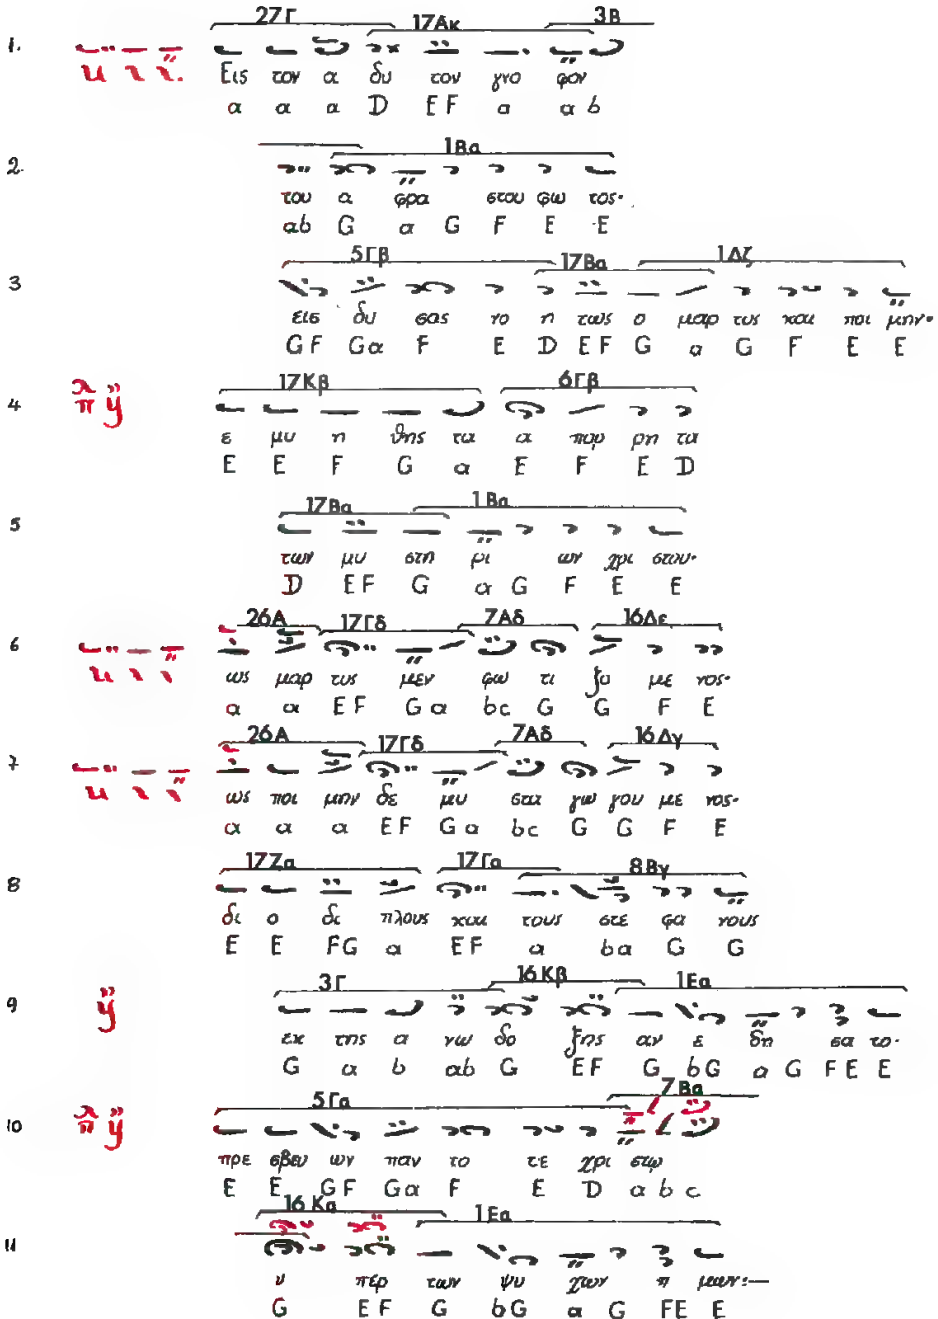 27Γ 17Ακ 3Β
1.
Εις τον α δυ τον γνο φον
a a a D E F a a b
1Βα
2.
του α φρα στου φω τος·
ab G a G F E E
5Γβ 17Βα 1Δζ
3
εις δυ σας νο η τως ο μαρ τυς και ποι μην·
G F G a F E D E F G a G F E E
17Κβ 6Γβ
4
ε μυ η θης τα α παρ ρη τα
E E F G a E F E D
17Βα 1Βα
5
των μυ στη ρι ων χρι στου·
D E F G a G F E E
26Α 17Γδ 7Αδ 16Δε
6
ως μαρ τυς μεν φω τι ζο με νος·
a a E F G a bc G G F E
26Α 17Γδ 7Αδ 16Δγ
7
ως ποι μην δε μυ στα γω γου με νος·
a a a E F G a bc G G F E
17Ζα 17Γα 8Βγ
8
δι ο δι πλους και τους στε φα νους
E E FG a E F a ba G G
3Γ 16Κβ 1Εα
9
εκ της α νω δο ξης αν ε δη σα το·
G a b ab G E F G bG a G F E E
5Γα 7Βα
10
πρε σβευ ων παν το τε χρι στω
E E G F G a F E D a b c
16Κα 1Εα
11
υ περ των ψυ χων η μων:—
G E F G bG a G FE E